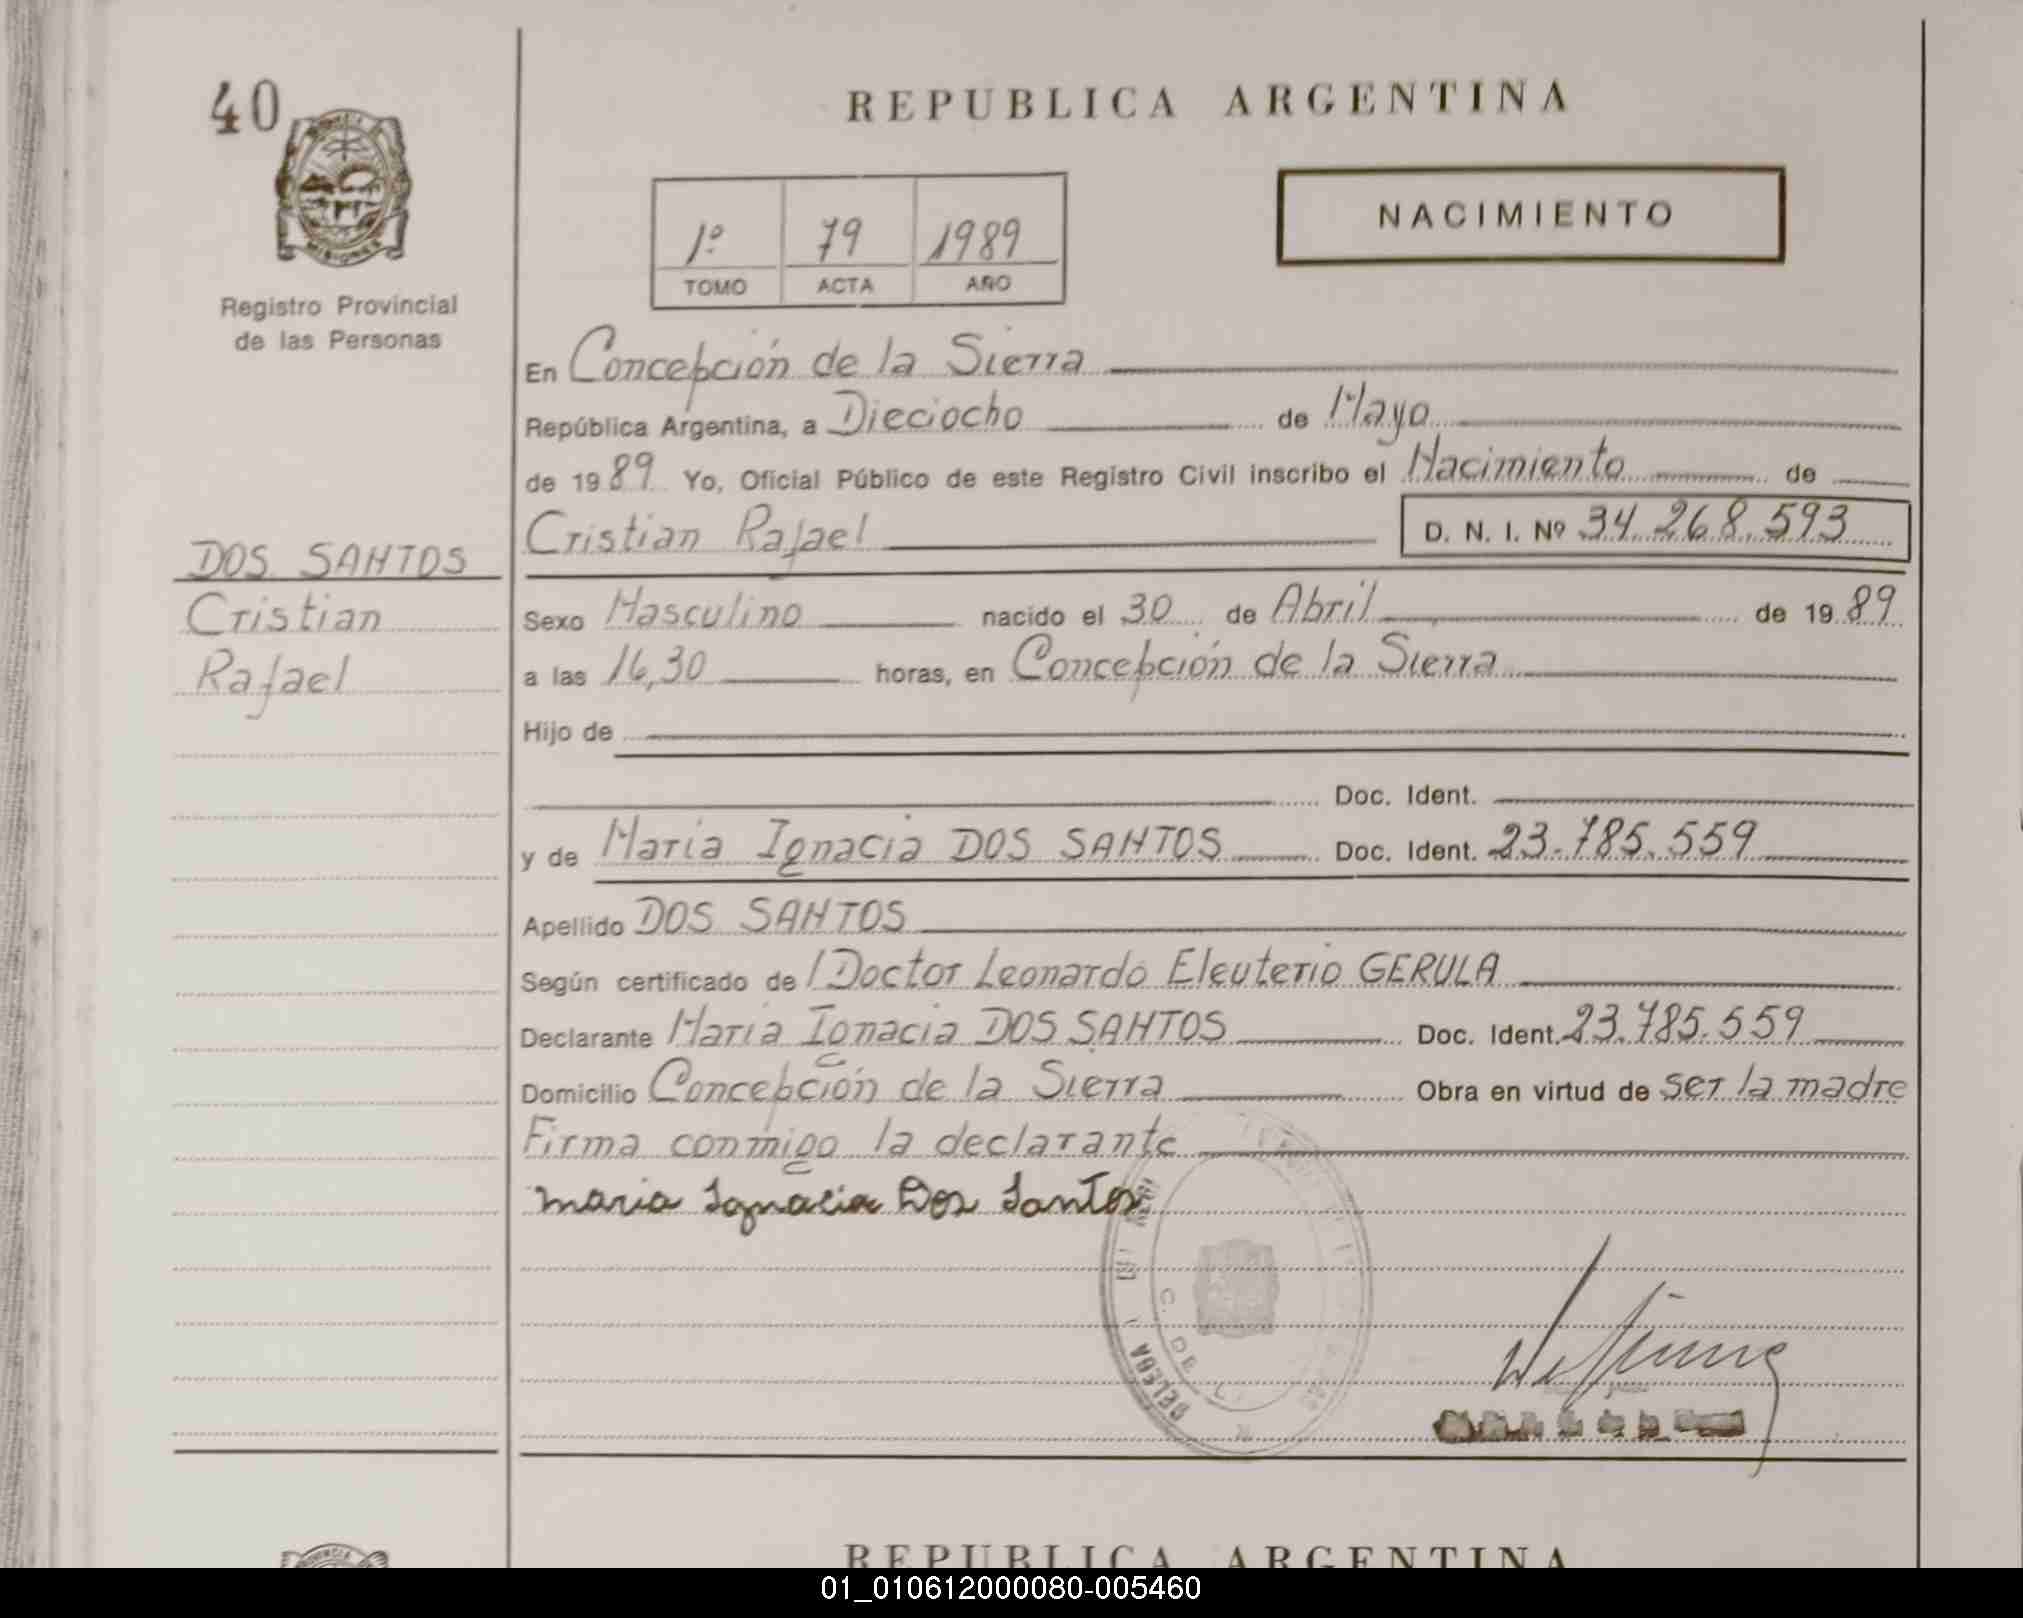 40
REPUBLICA ARGENTINA
MISIONES
Registro Provincial
de las Personas
1º 79 1989
TOMO ACTA AÑO
NACIMIENTO
En Concepción de la Sierra
República Argentina, a Dieciocho de Mayo
de 1989 Yo, Oficial Público de este Registro Civil inscribo el Nacimiento de
Cristian Rafael D. N. I. Nº 34.268.593
DOS SANTOS
Cristian
Rafael
Sexo Masculino nacido el 30 de Abril de 1989
a las 16,30 horas, en Concepción de la Sierra
Hijo de
Doc. Ident.
y de Maria Ignacia DOS SANTOS Doc. Ident. 23.785.559
Apellido DOS SANTOS
Según certificado de Doctor Leonardo Eleuterio GERULA
Declarante Maria Ignacia DOS SANTOS Doc. Ident. 23.785.559
Domicilio Concepción de la Sierra Obra en virtud de ser la madre
Firma conmigo la declarante
maria Ignacia Dos Santos
C. DE L
REPUBLICA ARGENTINA
01_010612000080-005460